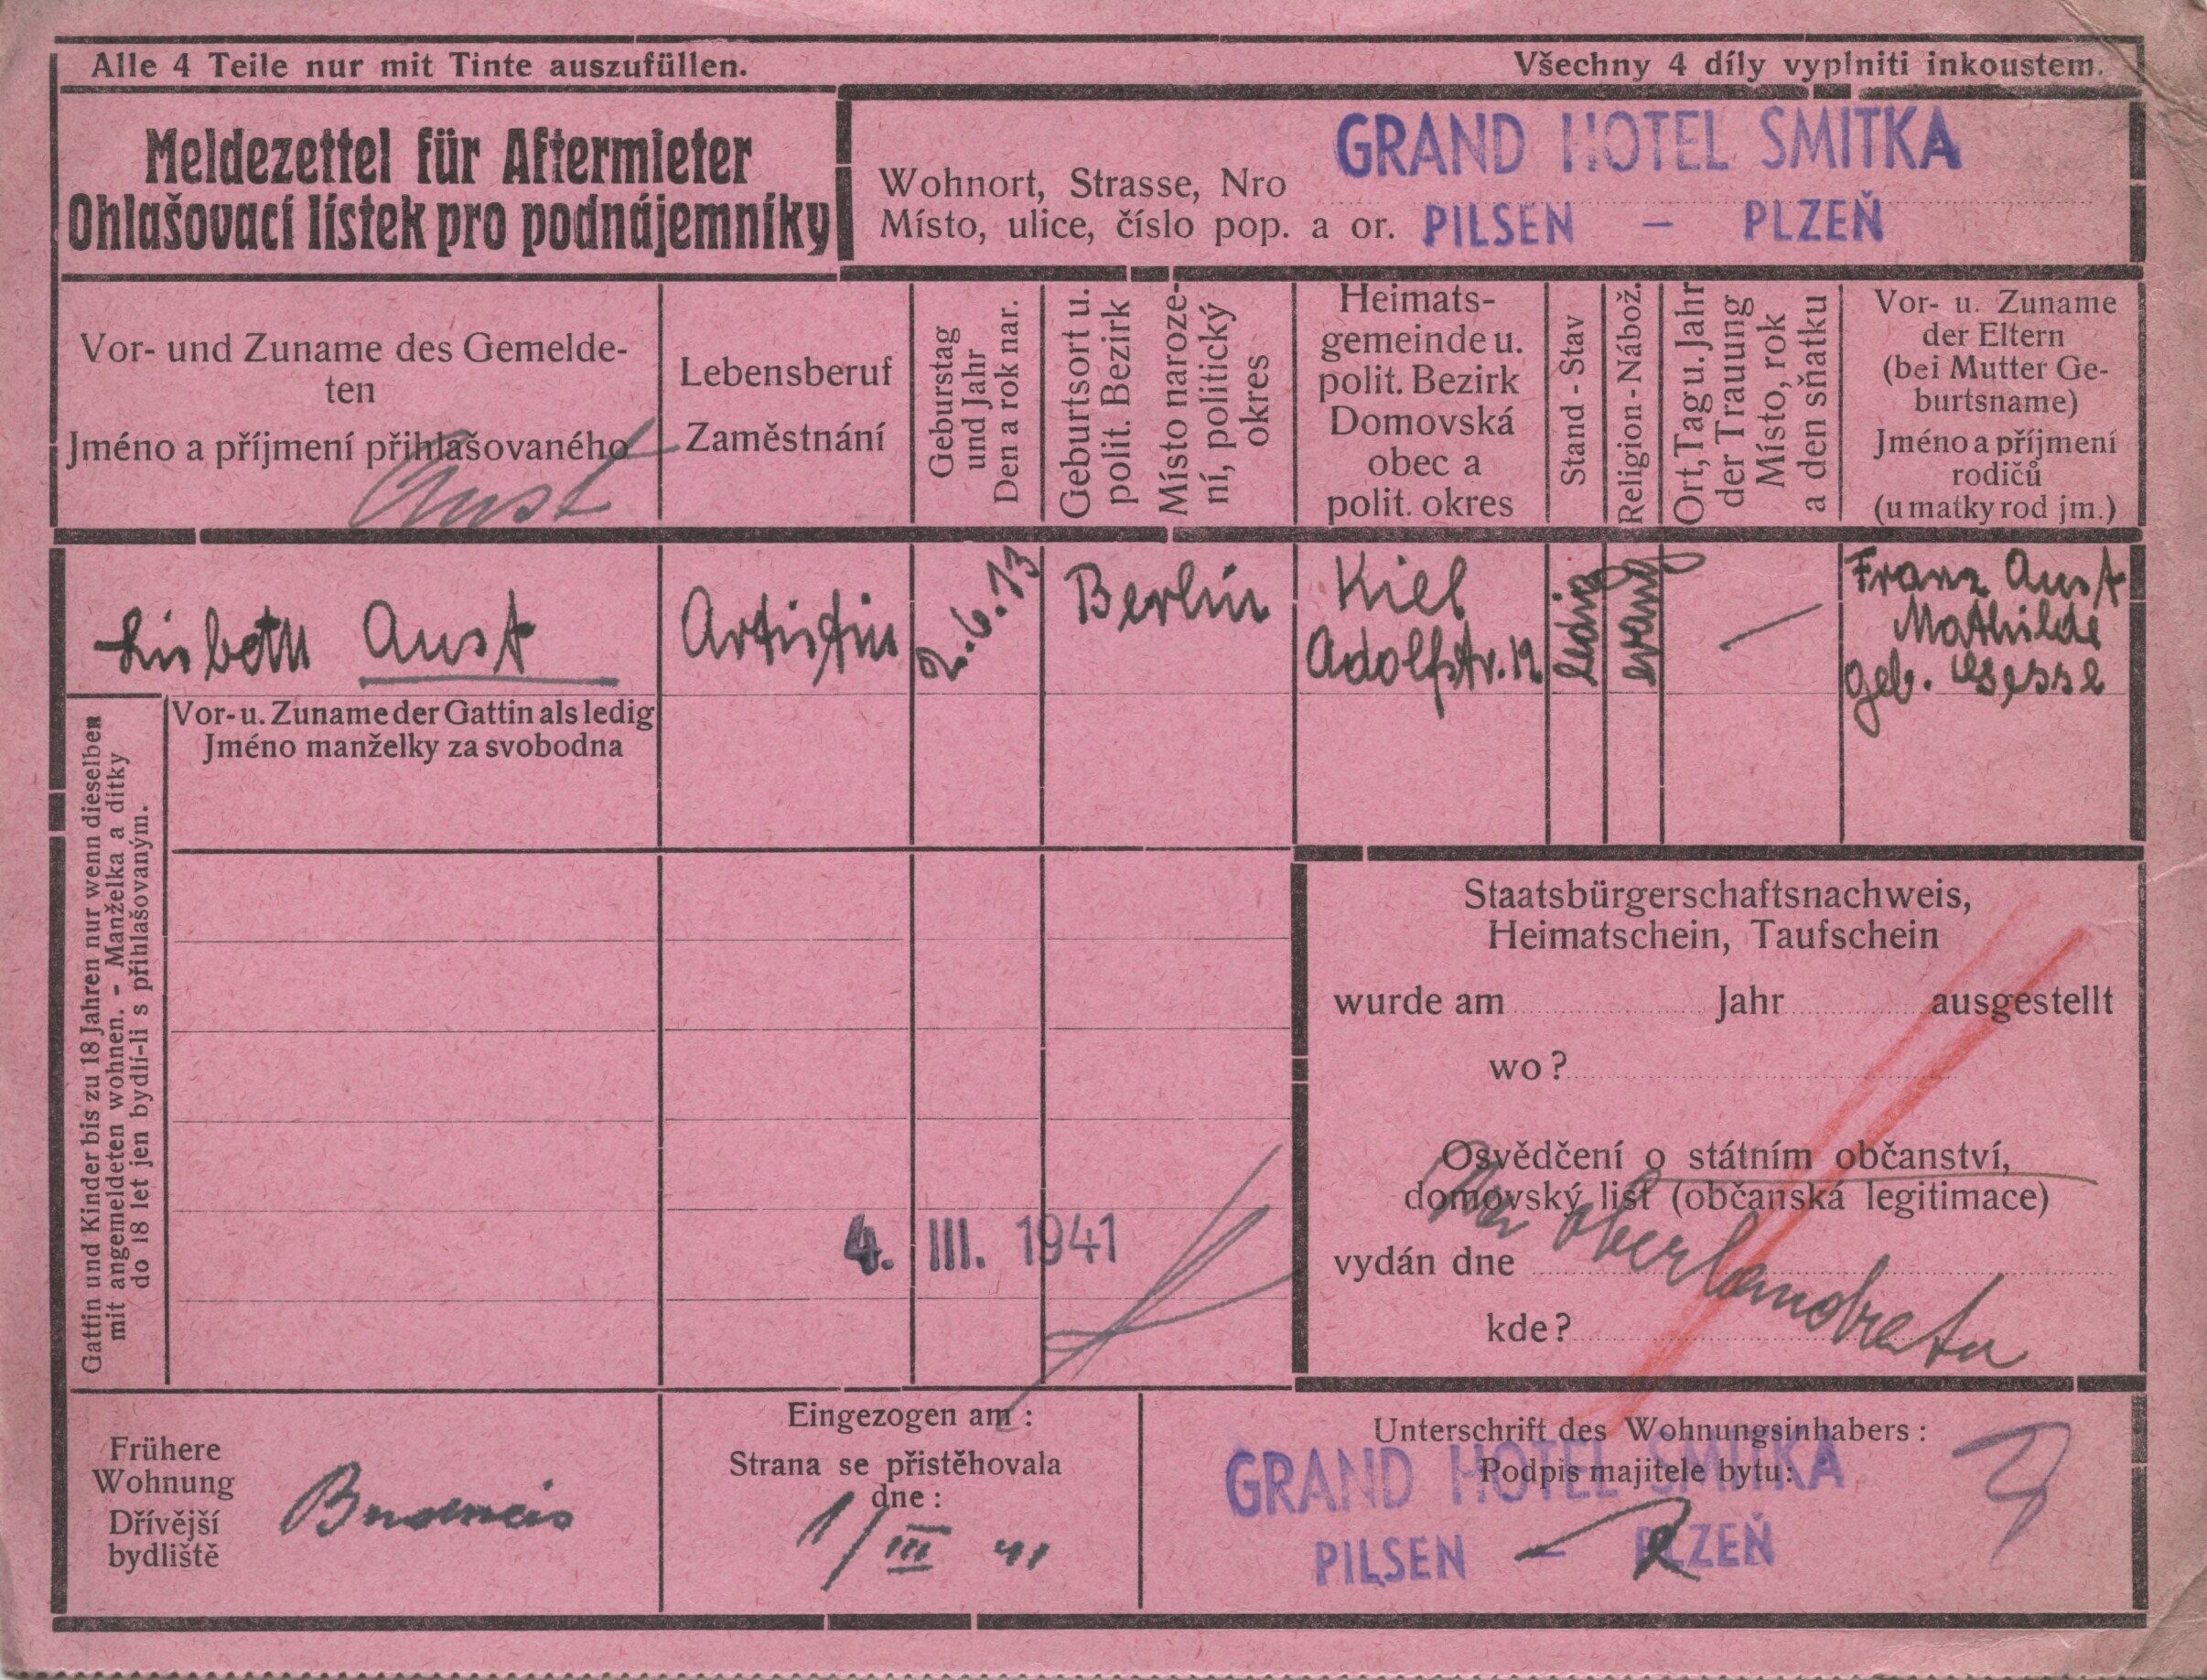 Alle 4 Teile nur mit Tinte auszufüllen.
Všechny 4 díly vyplniti inkoustem.
Meldezettel für Aftermieter
Ohlašovací lístek pro podnájemníky
Wohnort, Strasse, Nro
Místo, ulice, číslo pop. a or.
GRAND HOTEL SMITKA
PILSEN – PLZEŇ
Vor- und Zuname des Gemelde-
ten
Jméno a příjmení přihlašovaného
Aust
Lebensberuf
Zaměstnání
Geburstag
und Jahr
Den a rok nar.
Geburtsort u.
polit. Bezirk
Místo naroze-
ní, politický
okres
Heimats-
gemeinde u.
polit. Bezirk
Domovská
obec a
polit. okres
Stand - Stav
Religion-Nábož.
Ort, Tag u. Jahr
der Trauung
Místo, rok
a den sňatku
Vor- u. Zuname
der Eltern
(bei Mutter Ge-
burtsname)
Jméno a příjmení
rodičů
(u matky rod jm.)
Lisbeth Aust
Artistin
2.6.13
Berlin
Kiel
Adolfstr. 12
ledig
evang
—
Franz Aust
Mathilde
geb.
Vor- u. Zuname der Gattin als ledig
Jméno manželky za svobodna
Gattin und Kinder bis zu 18 Jahren nur wenn dieselben
mit angemeldeten wohnen. - Manželka a ditky
do 18 let jen bydlí-li s přihlašovaným.
4. III. 1941
Staatsbürgerschaftsnachweis,
Heimatschein, Taufschein
wurde am Jahr ausgestellt
wo?
Osvědčení o státním občanství,
domovský list (občanská legitimace)
vydán dne
kde?
oberlandratu
Frühere
Wohnung
Dřívější
bydliště
Budweis
Eingezogen am :
Strana se přistěhovala
dne :
1/III 41
Unterschrift des Wohnungsinhabers :
Podpis majitele bytu:
GRAND HOTEL SMITKA
PILSEN – PLZEŇ